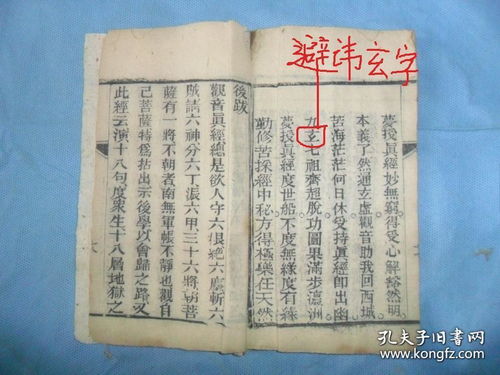 避讳玄字
夢授眞經妙無窮得受心解豁然明
本義了然通玄虛觀音助我回西城
苦海茫茫何日休受持眞經卽出幽
九玄七祖齊超脫功圓果滿步瀛洲
夢授眞經度世船不度無緣度有緣
勤修苦採經中秘方得極樂在天然
後跋
觀音眞經總是欲人守六根絕六塵斬六
賊請六神分六丁派六甲三十六將朝菩
薩有一將不朝者南無軍帳不靜也觀自
己菩薩特為拈出示後學以會歸之路又
此經云演十八句度衆生十八層地獄之
孔夫子旧书网
www.kongfz.com